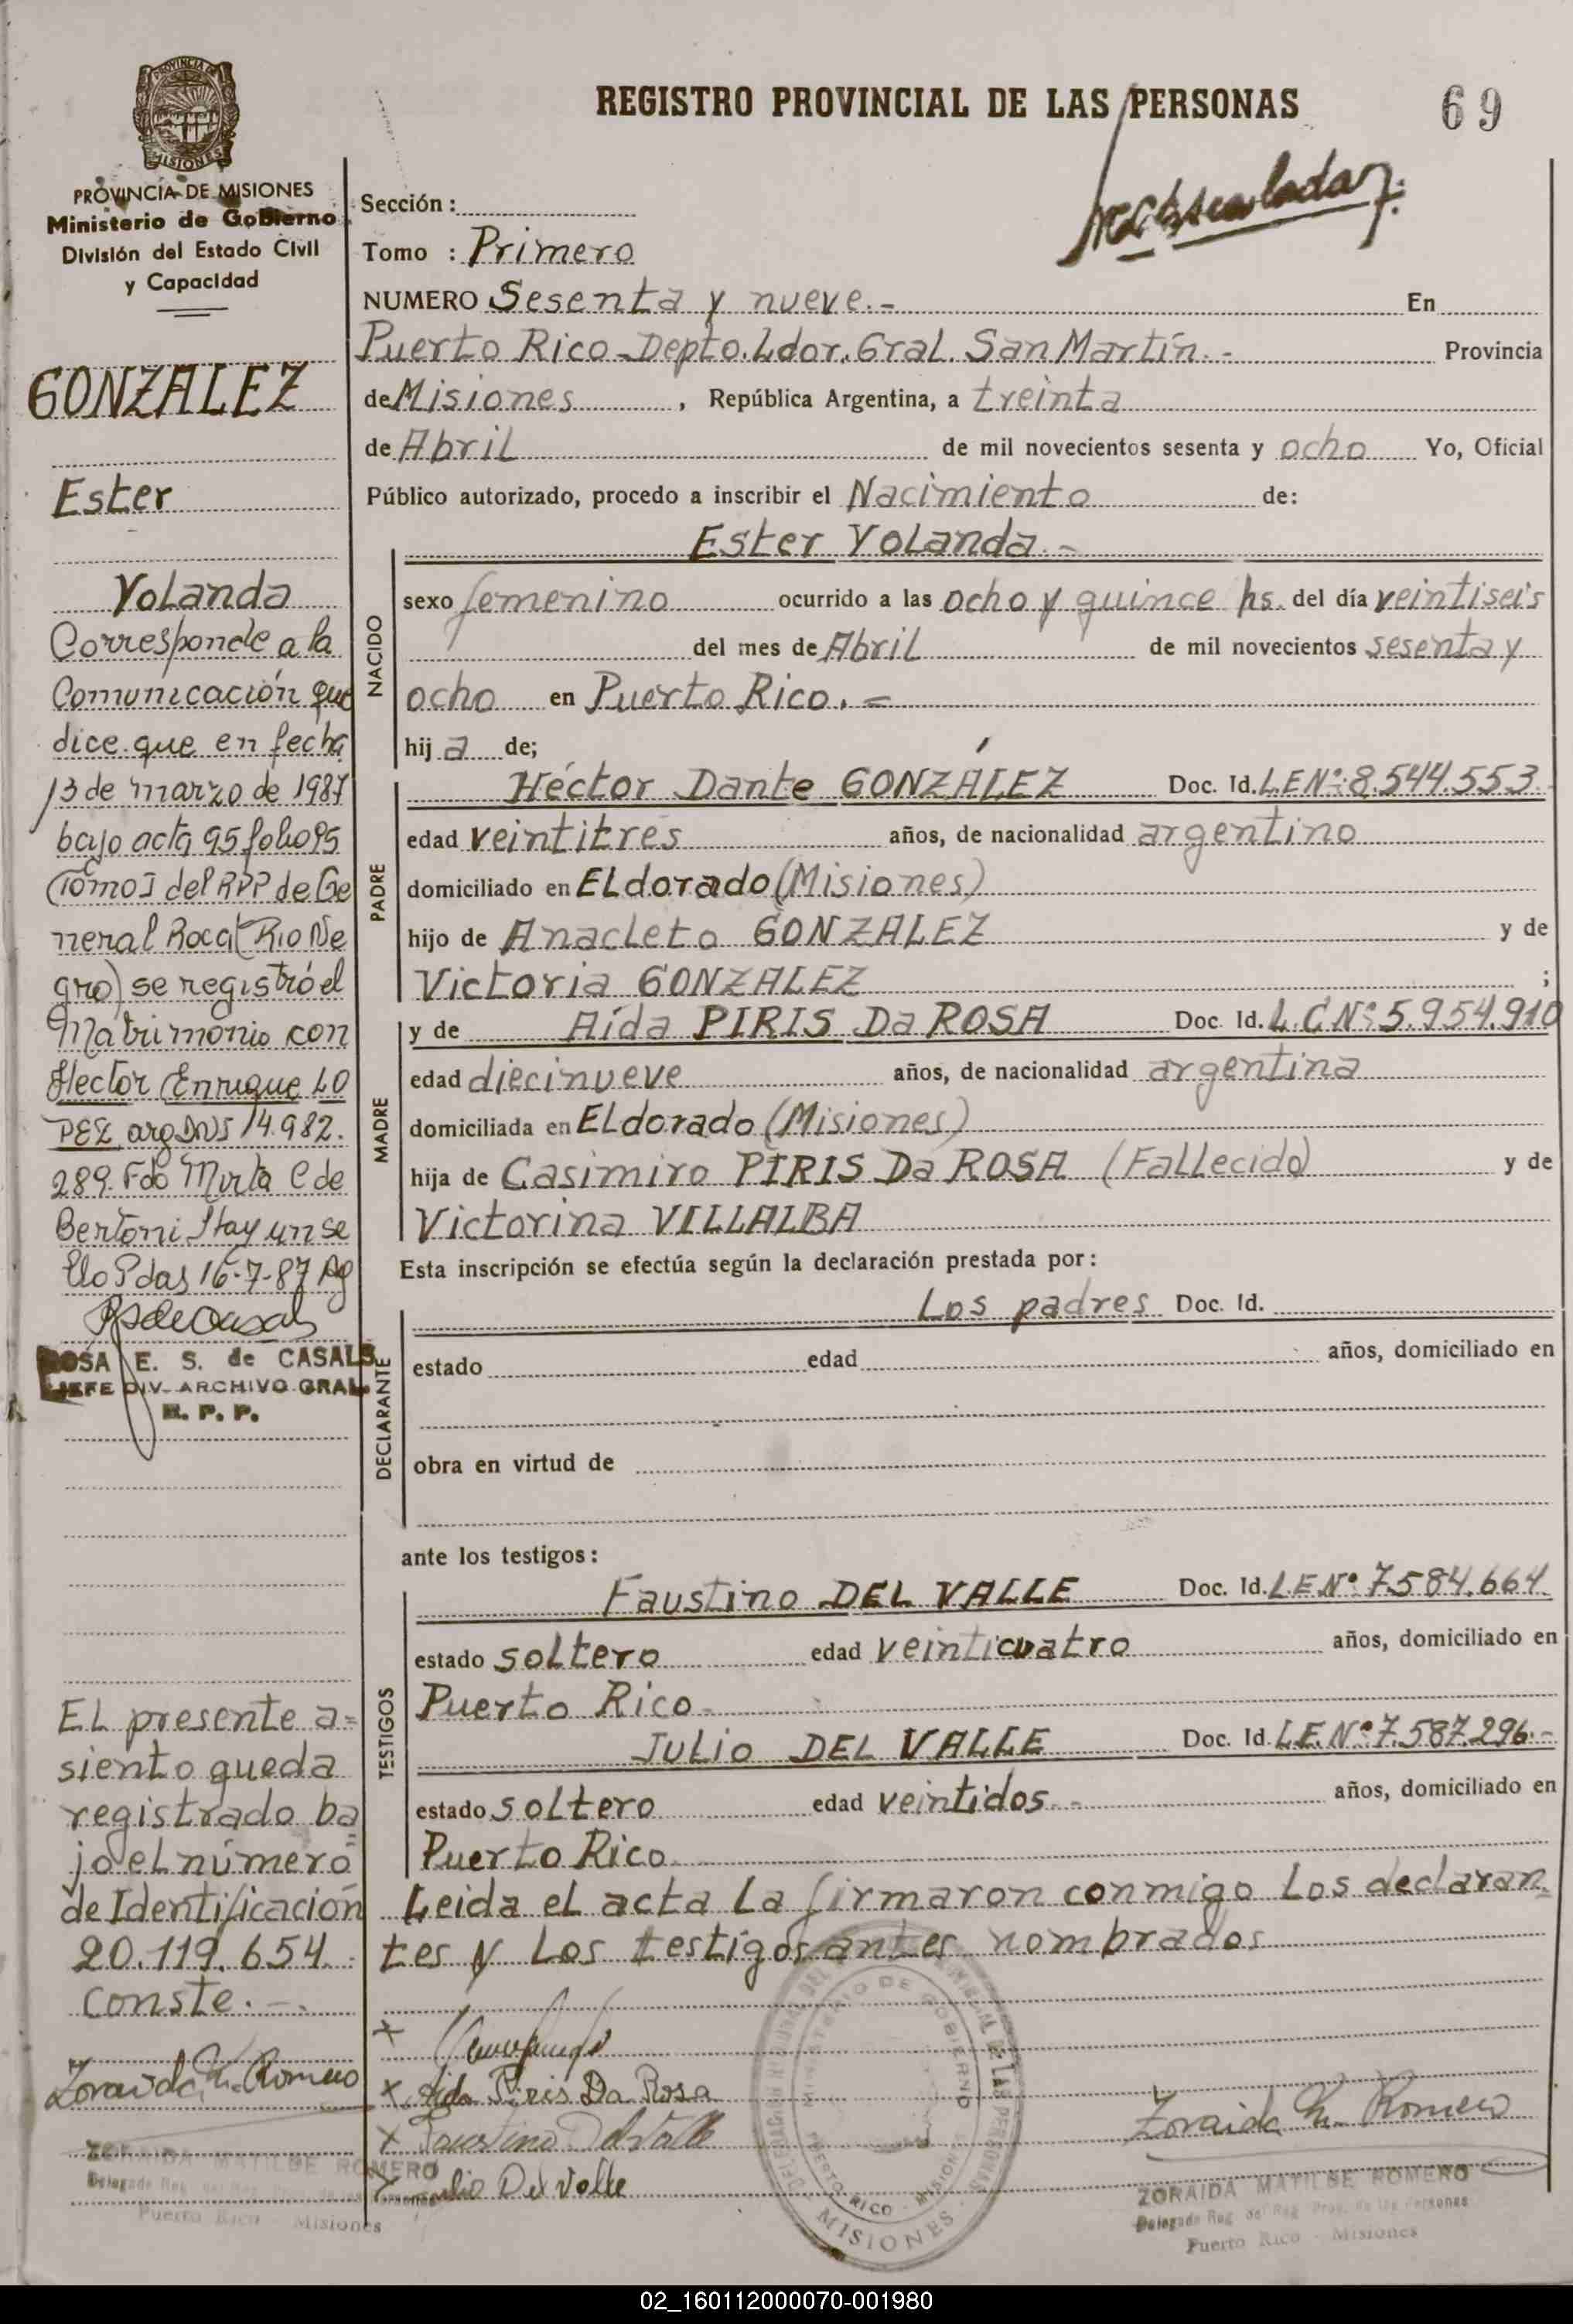 PROVINCIA DE MISIONES
Ministerio de Gobierno
División del Estado Civil
y Capacidad
REGISTRO PROVINCIAL DE LAS PERSONAS
69
Sección :
Tomo : Primero
NUMERO Sesenta y nueve.- En
Puerto Rico-Depto. Ldor. Gral. San Martín.- Provincia
de Misiones, República Argentina, a treinta
de Abril de mil novecientos sesenta y ocho Yo, Oficial
Público autorizado, procedo a inscribir el Nacimiento de:
Ester Yolanda.-
NACIDO
sexo femenino ocurrido a las ocho y quince hs. del día veintiseis
del mes de Abril de mil novecientos sesenta y
ocho en Puerto Rico.=
hij a de;
PADRE
Héctor Dante GONZÁLEZ Doc. Id. L.E.Nº: 8.544.553
edad veintitres años, de nacionalidad argentino
domiciliado en ELdorado (Misiones)
hijo de Anacleto GONZALEZ y de
Victoria GONZALEZ ;
MADRE
y de Aída PIRIS Da ROSA Doc. Id. L.C.Nº: 5.954.910
edad diecinueve años, de nacionalidad argentina
domiciliada en ELdorado (Misiones)
hija de Casimiro PIRIS Da ROSA (Fallecido) y de
Victorina VILLALBA
Esta inscripción se efectúa según la declaración prestada por:
DECLARANTE
Los padres Doc. Id.
estado edad años, domiciliado en
obra en virtud de
ante los testigos:
TESTIGOS
Faustino DEL VALLE Doc. Id. L.E.Nº 7.584.664
estado soltero edad veinticuatro años, domiciliado en
Puerto Rico-
Julio DEL VALLE Doc. Id. L.E.Nº 7.587.296.-
estado soltero edad veintidos.- años, domiciliado en
Puerto Rico
Leida el acta la firmaron conmigo los declaran
tes y los testigos antes nombrados
x
x Aida Piris Da Rosa
x Faustino Del Valle
x Julio Del Valle
Zoraida M. Romero
ZORAIDA MATILDE ROMERO
Delegada Reg. del Reg. Prov. de las Personas
Puerto Rico - Misiones
MINISTERIO DE GOBIERNO
PUERTO RICO - MISIONES
MISIONES
GONZALEZ
Ester
Yolanda
Corresponde a la
Comunicación que
dice que en fecha
13 de marzo de 1987
bajo acta 95 folio 95
Tomo I del RPP de Ge
neral Roca (Rio Ne
gro) se registró el
Matrimonio con
Hector Enrique LO
PEZ arg DNI 14.982.
289. Fdo Mirta C de
Bertoni Hay un se
llo Pdas 16-7-87
ROSA E. S. de CASALS
JEFE DIV. ARCHIVO GRAL.
R. P. P.
EL presente a=
siento queda
registrado ba
jo el número
de Identificación
20.119.654.
conste.-.
Zoraida M. Romero
ZORAIDA MATILDE ROMERO
Puerto Rico Misiones
02_160112000070-001980